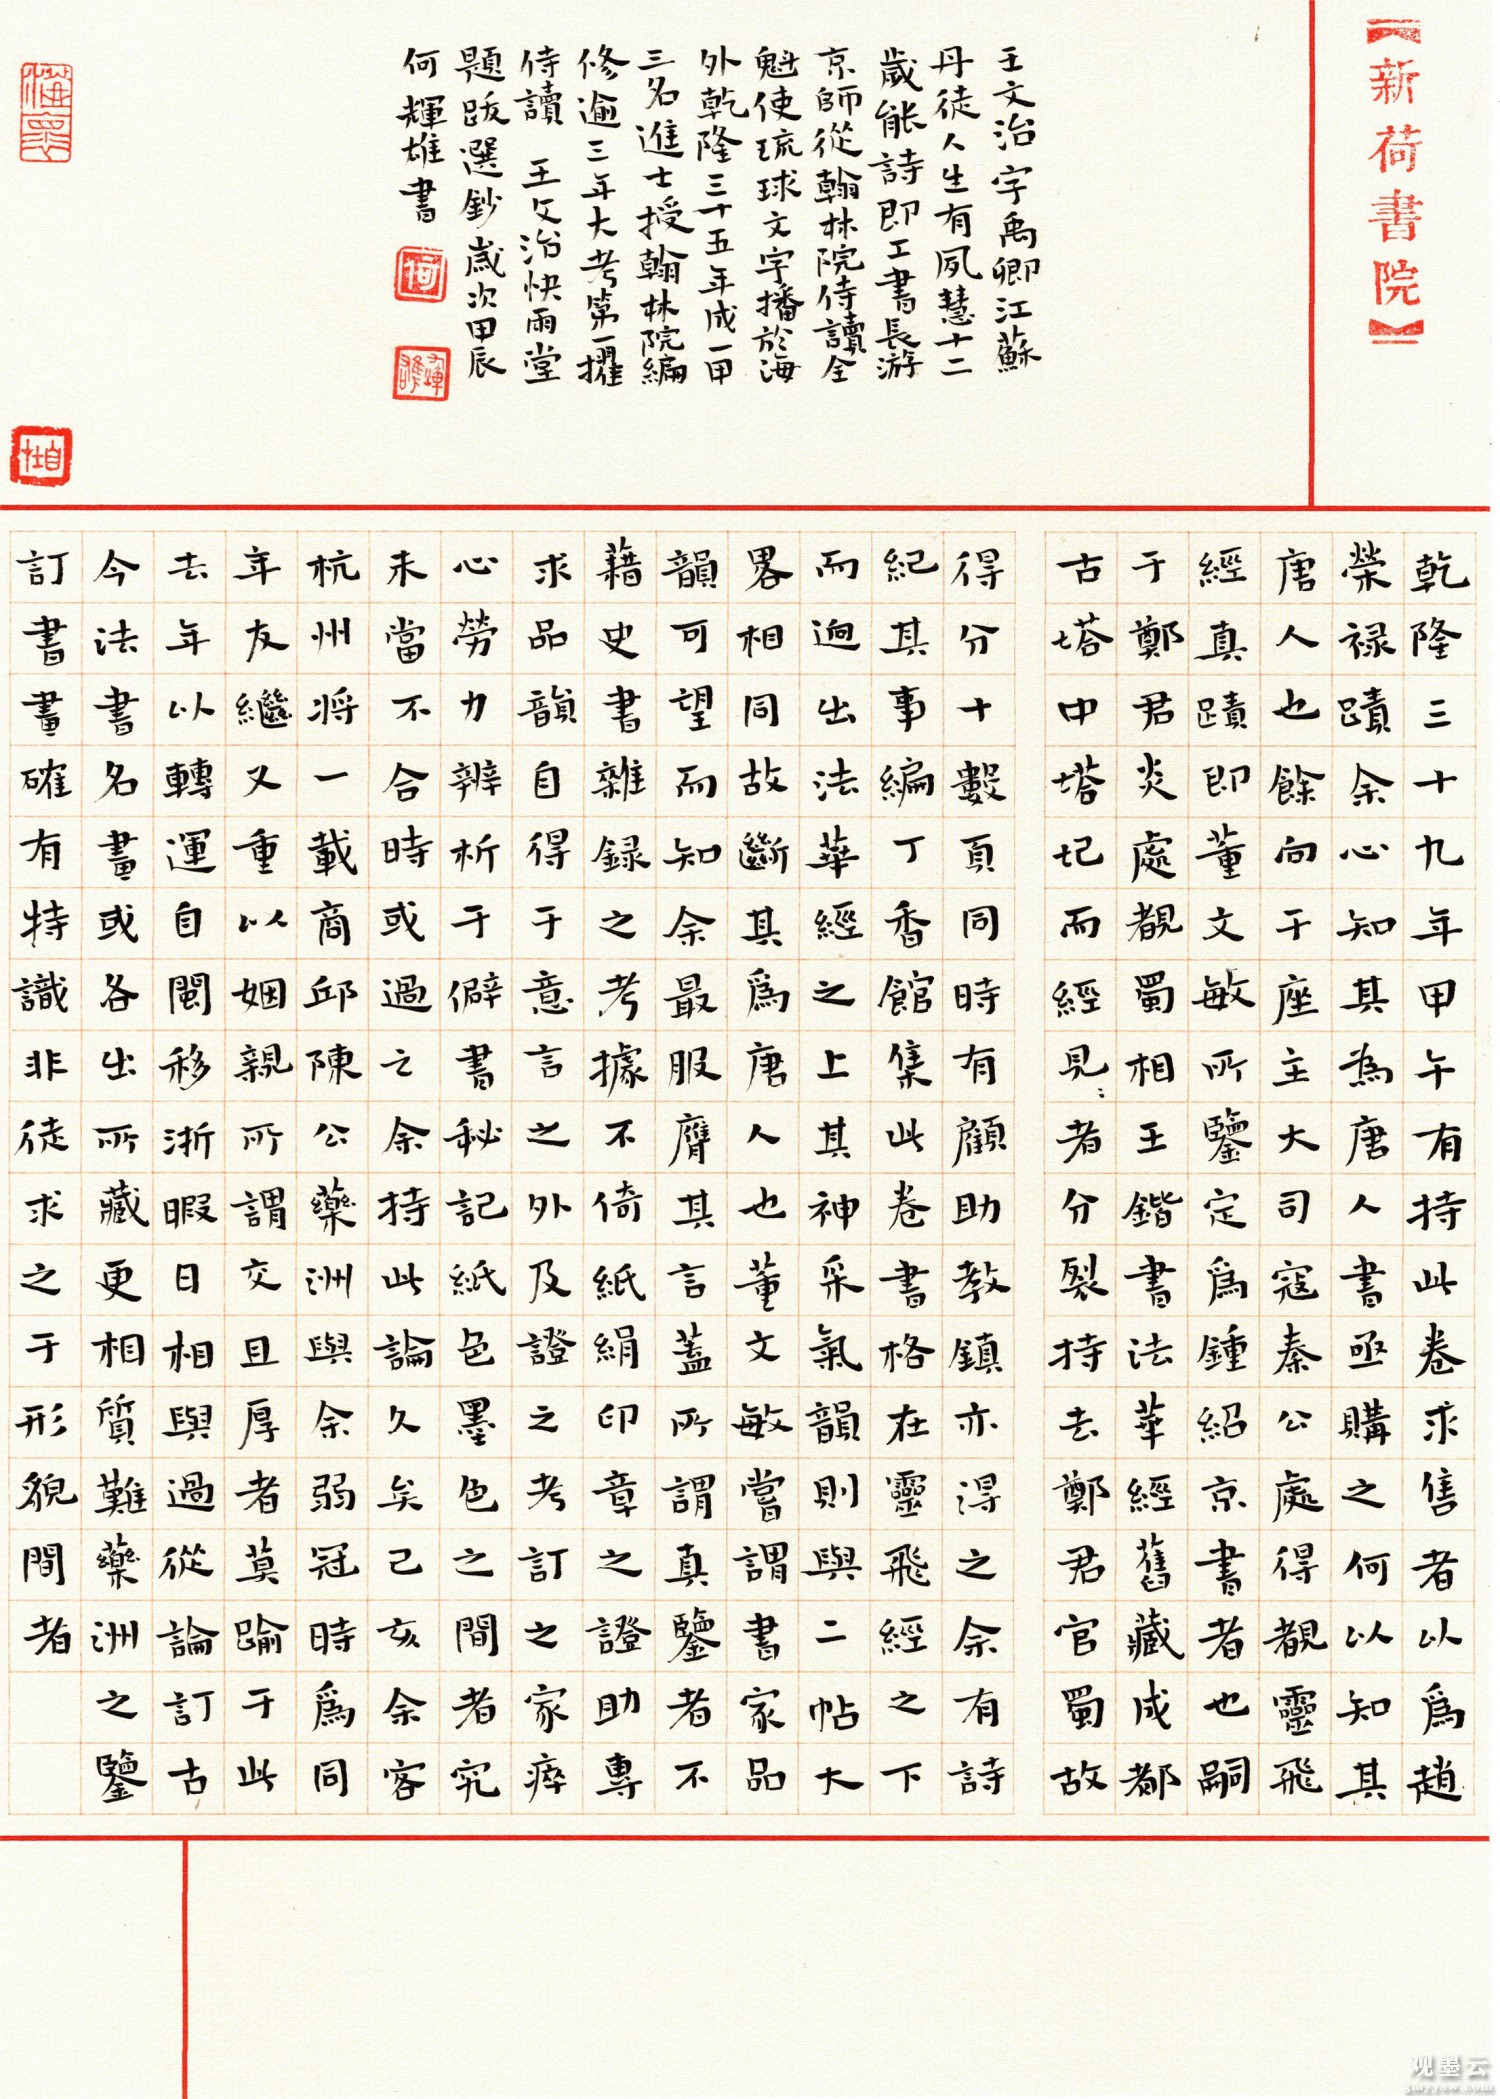 【新荷書院】
王文治字禹卿江蘇
丹徒人生有夙慧十二
歲能詩即工書長游
京師從翰林院侍讀全
魁使琉球文字播於海
外乾隆三十五年成一甲
三名進士授翰林院編
修逾三年大考第一擢
侍讀 王文治快雨堂
題跋選鈔歲次甲辰
何輝雄書
乾隆三十九年甲午有持此卷求售者以爲趙
榮禄蹟余心知其為唐人書亟購之何以知其
唐人也餘向于座主大司寇秦公處得覩靈飛
經真蹟即董文敏所鑒定爲鍾紹京書者也嗣
于鄭君炎處覩蜀相王鍇書法華經舊藏成都
古塔中塔圮而經見:者分裂持去鄭君官蜀故
得分十數頁同時有顧助教鎮亦淂之余有詩
紀其事編丁香館集此卷書格在靈飛經之下
而逈出法華經之上其神采氣韻則與二帖大
畧相同故斷其爲唐人也董文敏嘗謂書家品
韻可望而知余最服膺其言蓋所謂真鑒者不
藉史書雜録之考據不倚紙絹印章之證助專
求品韻自得于意言之外及證之考訂之家瘁
心勞力辨析于僻書秘記紙色墨色之間者究
未當不合時或過之余持此論久矣己亥余客
杭州將一載商邱陳公藥洲與余弱冠時爲同
年友繼又重以姻親所謂交且厚者莫踰于此
去年以轉運自閩移浙暇日相與過從論訂古
今法書名畫或各出所藏更相質難藥洲之鑒
訂書畫確有特識非徒求之于形貌間者
何
自在
观墨云